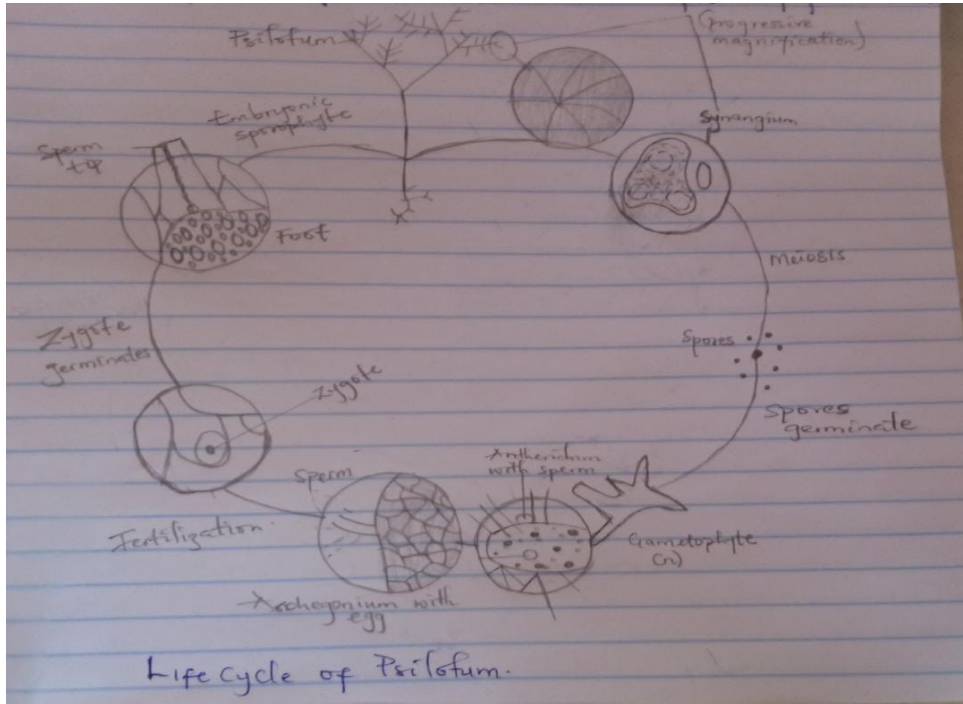 Psilotum
(progressive
magnification)
Embryonic
sporophyte
Synangium
Sperm
Foot
Meiosis
Zygote
germinates
Spores
Zygote
Spores
germinate
Antheridium
with sperm
Sperm
Fertilization
Gametophyte
(n)
Archegonium with
egg
Life cycle of Psilotum.